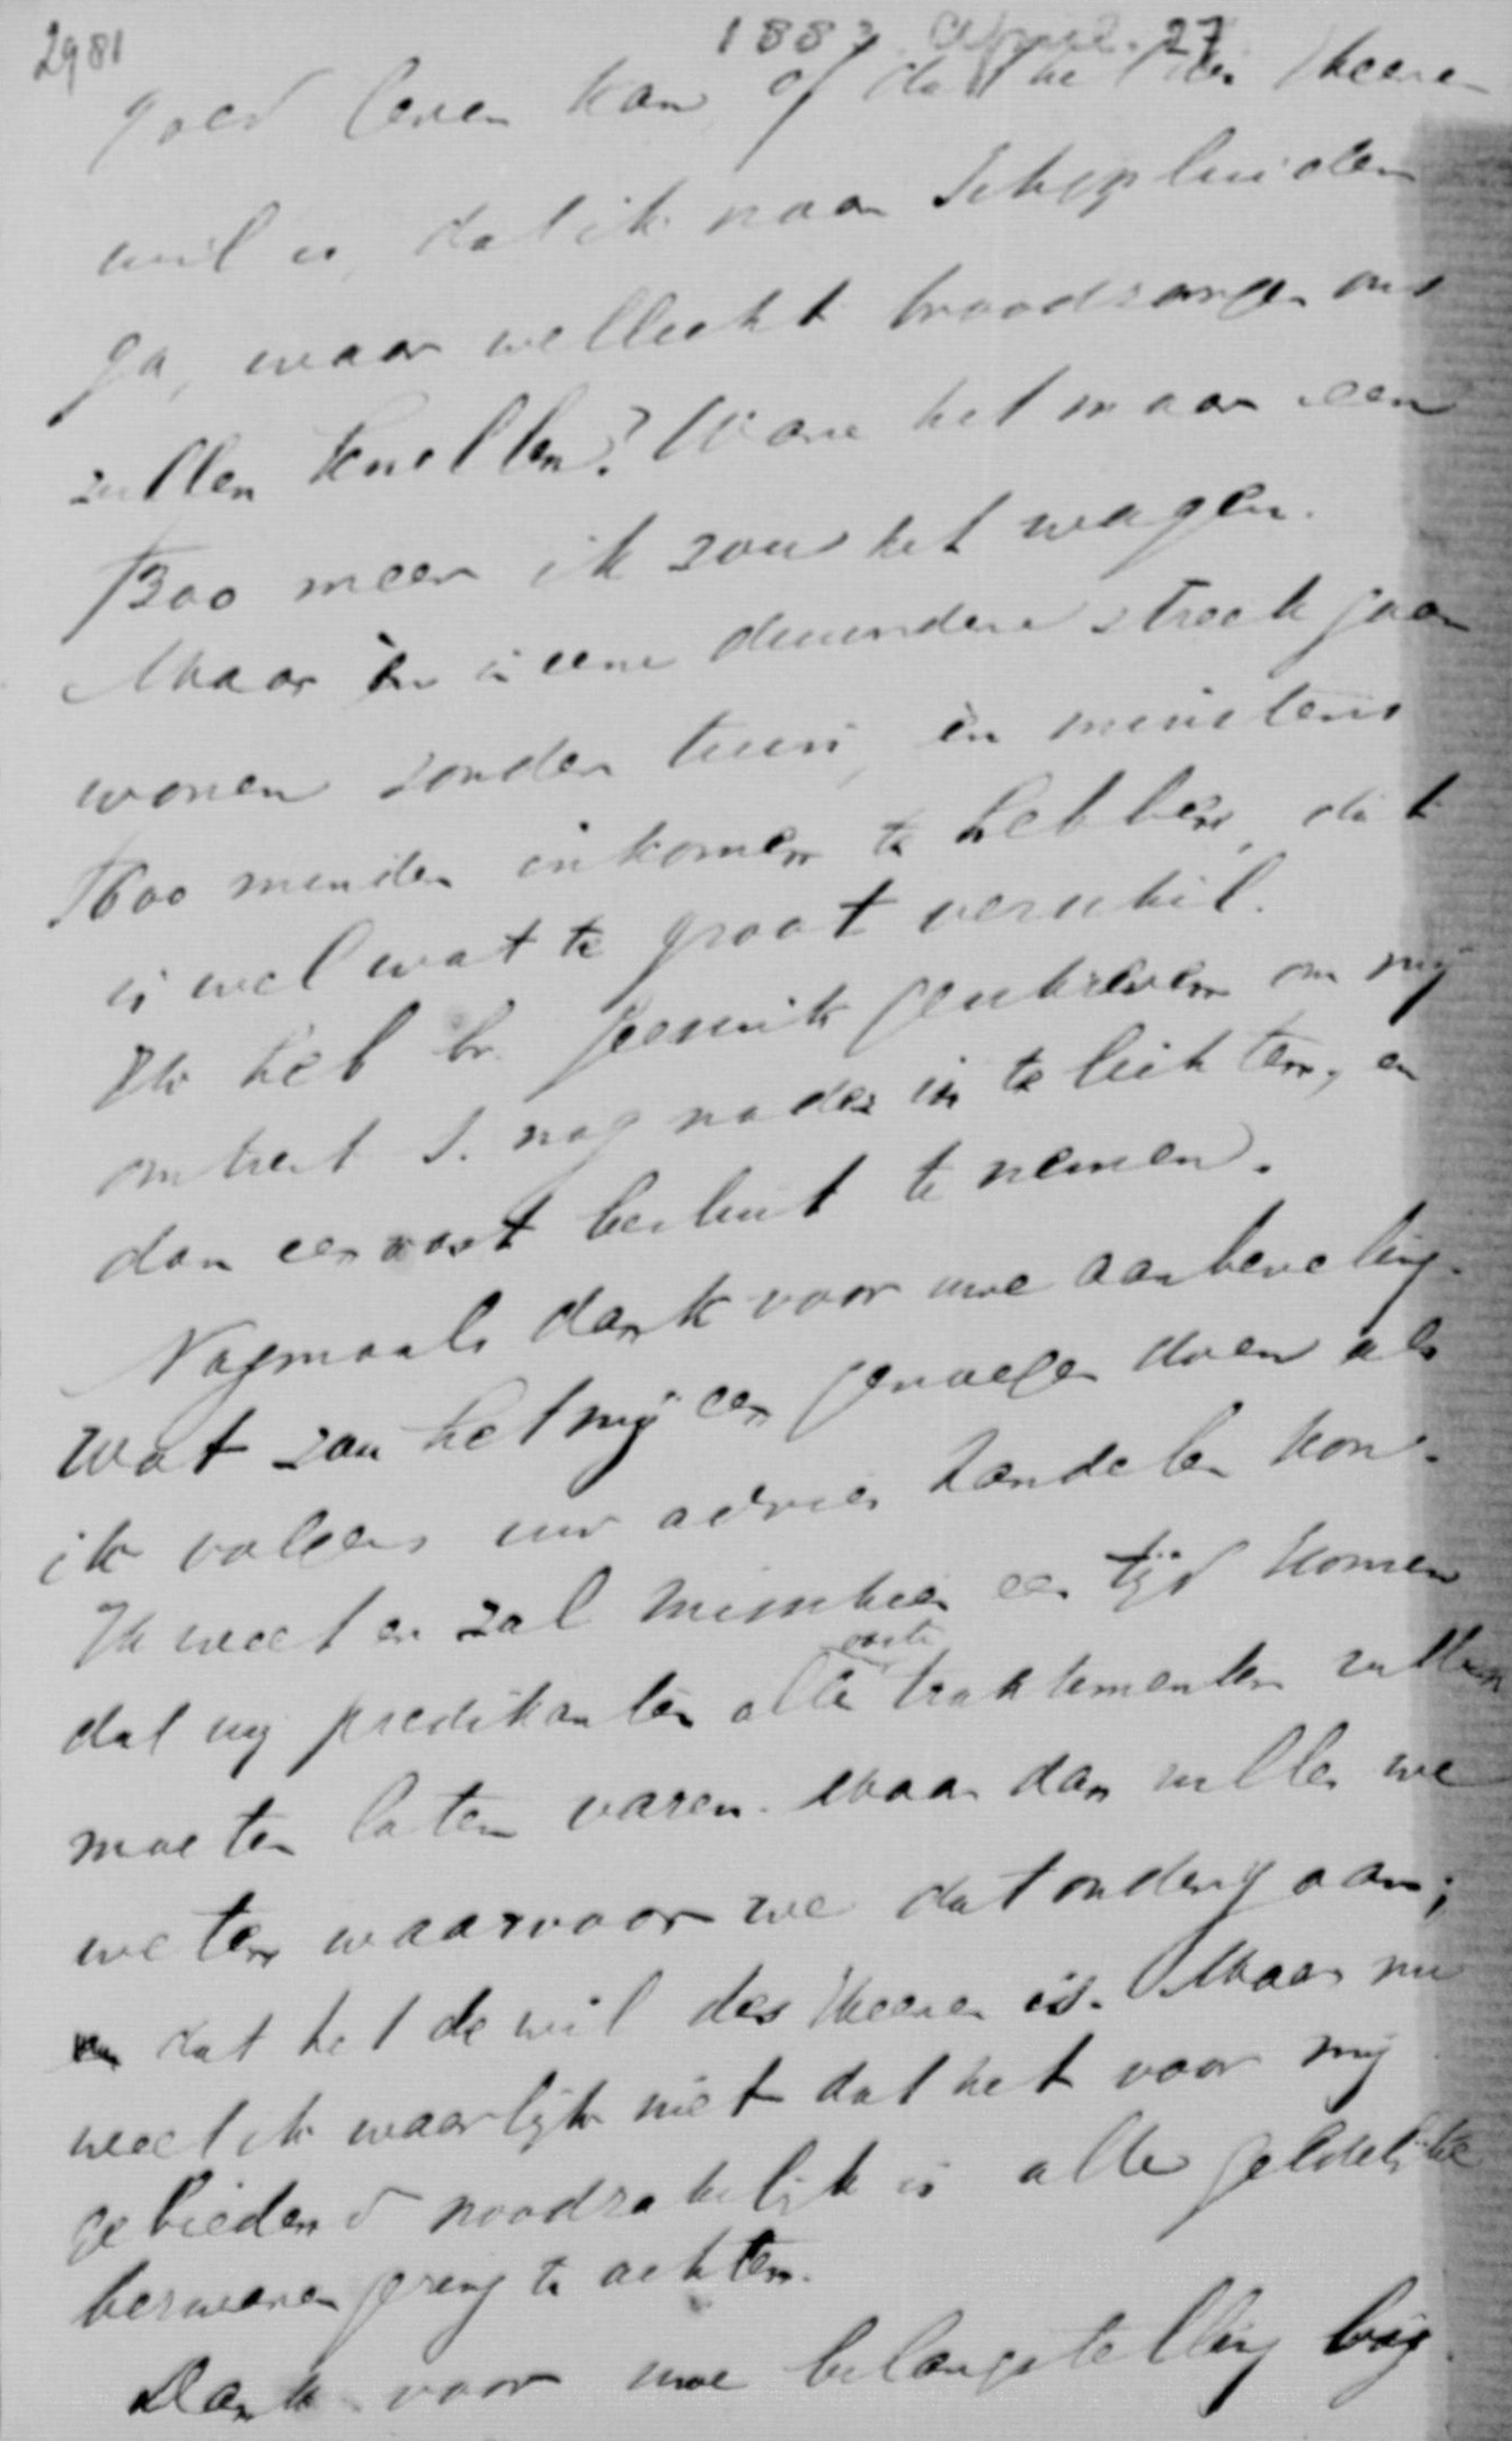 2981
1883 April. 27
goed leven kan, of dat het des Heeren
wil is, dat ik naar Schipluiden
ga, waar wellicht broodzorgen ons
zullen knellen? Ware het maar een
ƒ300 meer ik zou het wagen.
Maar èn in eene duurdere streek gaan
wonen zonder tuin, èn minstens
ƒ600 minder inkomen te hebben, dat
is wel wat te groot verschil.
Ik heb br. geschreven om mij
omtrent S. nog nader in te lichten, en
dan een vast besluit te nemen.
Nogmaals dank voor uwe aanbeveling.
Wat zou het mij een genoegen doen als
ik volgens uw advies handelen kon.
Ik weet er zal misschien een tijd komen
dat wij predikanten alle vaste traktementen zullen
moeten laten varen. Maar dan zullen we
weten waarvoor we dat ondergaan;
dat het de wil des Heeren is. Maar nu
weet ik waarlijk niet dat het voor mij
gebiedend noodzakelijk is alle geldelijke
bezwaren gering te achten.
Dank voor uwe belangstelling bij